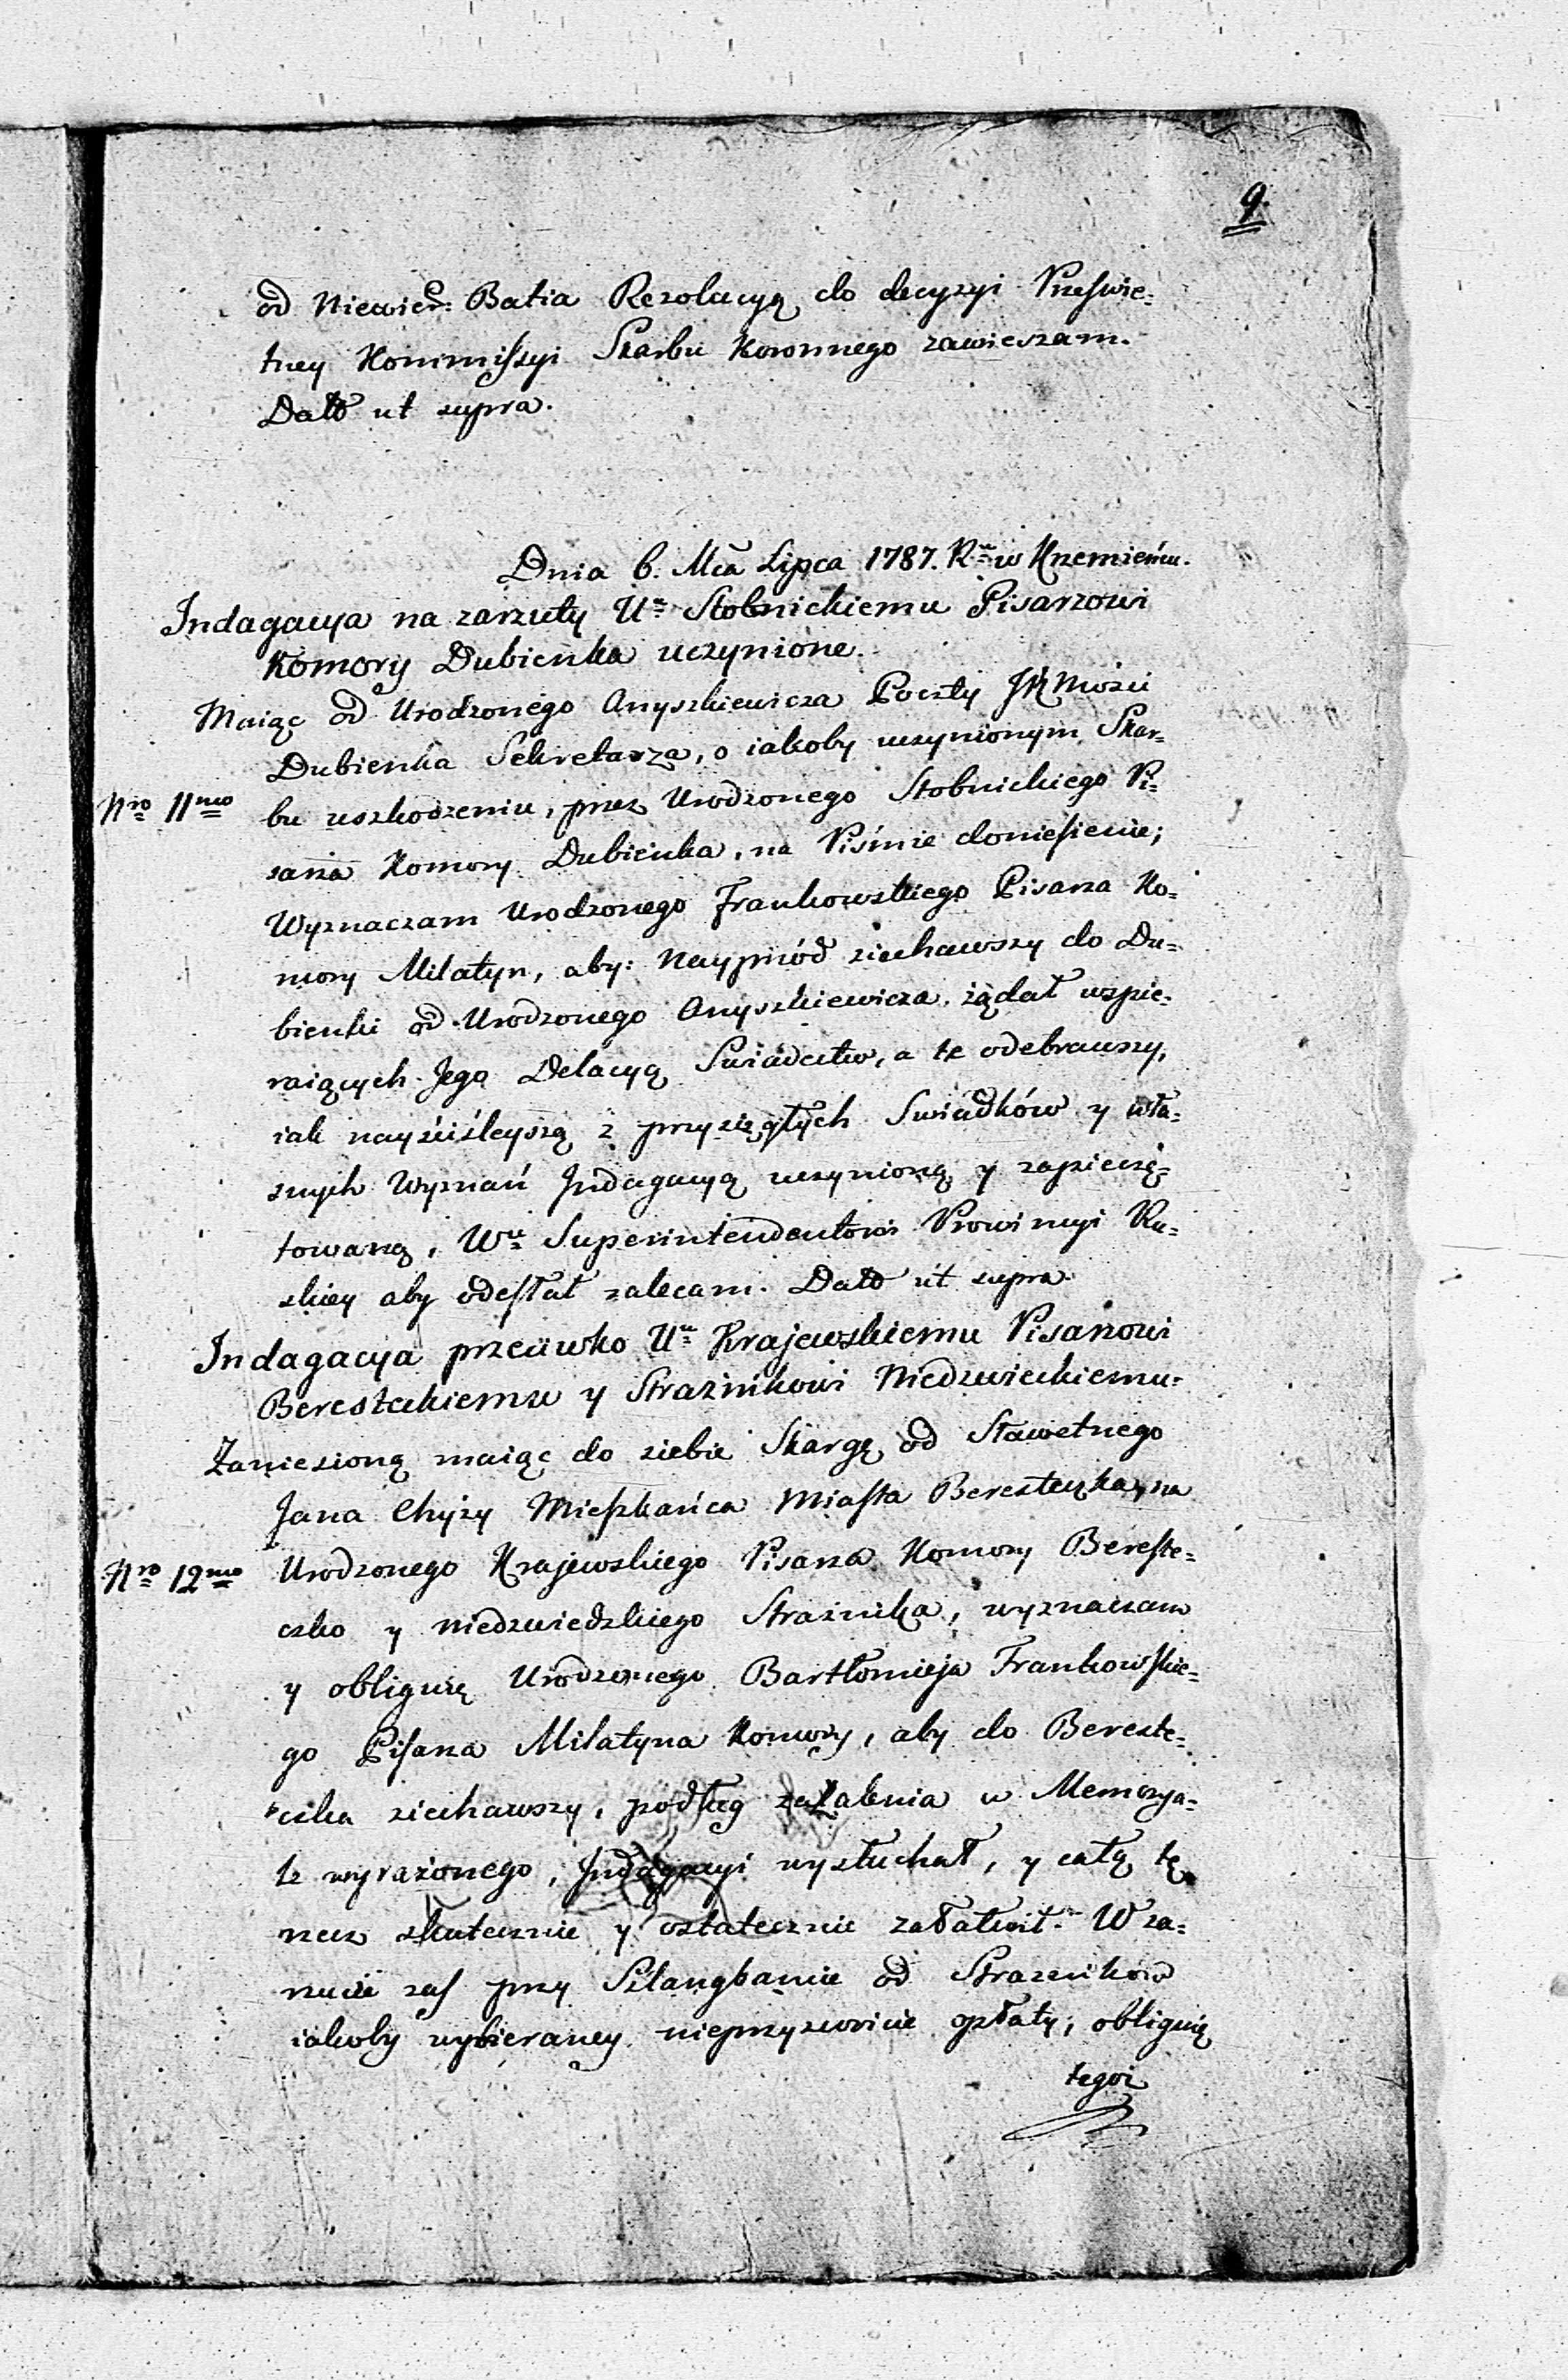 9.
od Niewier: Batia Rezolucyą do decyzyi Prześwie=
tney Kommiſszyi Skarbu Koronnego zawieszam.
Datt ut supra.
Dnia 6. Mca Lipca 1787. Ru w Krzemieńcu.
Indagacya na zarzuty Uu Stobnickiemu Pisarzowi
Komory Dubienka uczynione.
Maiąc od Urodzonego Anyszkiewicza Poczty JKMości
Dubienka Sekretarza, o iakoby uczynionym Skar=
Nro 11mo bu uszkodzeniu, przez Urodzonego Stobnickiego Pi=
sarza Komory Dubienka, na Piśmie donieſienie;
Wyznaczam Urodzonego Frankowskiego Pisarza Ko=
mory Milatyn, aby: Nayprzód ziechawszy do Du=
bienki od Urodzonego Anyszkiewicza żądał wspie=
raiących Jego Delacyą Swiadectw, a te odebrawszy,
iak nayściśleyszą z przysięgłych Swiadków y wła=
snych Wyznań Indagacyą uczynioną y zapieczę=
towaną, Wu Superintendentowi Prowincyi Ru=
skiey aby odeſłał zalecam. Datt ut supra.
Indagacya przeciwko Uu Krajewskiemu Pisarzowi
Beresteckiemu y Strażnikowi Niedzwieckiemu.
Zaniesioną maiąc do siebie Skargę od Sławetnego
Jana Chyży Mieſzkańca Miaſta Beresteczka, na
Nro 12mo Urodzonego Krajewskiego Pisarza Komory Bereſte=
czko y Niedzwiedzkiego Strażnika, wyznaczam
y obliguię Urodzonego Bartłomieja Frankowſkie=
go Piſarza Milatyna Komory, aby do Bereste=
czka ziechawszy, podług zażalenia w Memorya=
le wyrażonego, Indagacyi wysłuchał, y całą tę
rzecz skutecznie y ostatecznie załatwił. W za=
rzucie zaſ przy Szlangbamie od Strażników
iakoby wybieraney nieprzyzwoicie opłaty, obliguię
tegoż